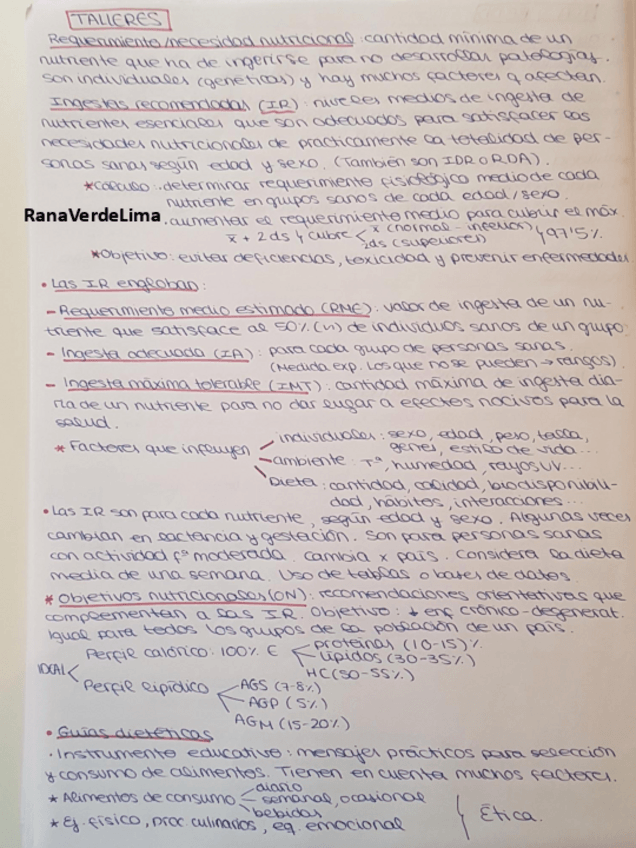 TALLERES
Requerimiento/necesidad nutricional: cantidad mínima de un
nutriente que ha de ingerirse para no desarrollar patologías.
Son individuales (genéticas) y hay muchos factores q afectan.
Ingestas recomendadas (IR): niveles medios de ingesta de
nutrientes esenciales que son adecuados para satisfacer las
necesidades nutricionales de prácticamente la totalidad de per-
sonas sanas según edad y sexo. (También son IDR o RDA).
*Cálculo: .determinar requerimiento fisiológico medio de cada
nutriente en grupos sanos de cada edad/sexo.
RanaVerdeLima .aumentar el requerimiento medio para cubrir el máx.
x̄ + 2ds } cubre < x (normal - inferior) } 97'5%
2ds (superiores)
*Objetivo: evitar deficiencias, toxicidad y prevenir enfermedades
• Las IR engloban:
- Requerimiento medio estimado (RME): valor de ingesta de un nu-
triente que satisface al 50% (n) de individuos sanos de un grupo.
- Ingesta adecuada (IA): para cada grupo de personas sanas.
(Medida exp. Los que no se pueden → rangos).
- Ingesta máxima tolerable (IMT): cantidad máxima de ingesta dia-
ria de un nutriente para no dar lugar a efectos nocivos para la
salud.
* Factores que influyen - individuales: sexo, edad, peso, talla,
genes, estilo de vida...
- ambiente: Tª, humedad, rayos UV...
Dieta: cantidad, calidad, biodisponibili-
dad, hábitos, interacciones...
• Las IR son para cada nutriente, según edad y sexo. Algunas veces
cambian en lactancia y gestación. Son para personas sanas
con actividad fª moderada. Cambia x país. Considera la dieta
media de una semana. Uso de tablas o bases de datos.
* Objetivos nutricionales (ON): recomendaciones orientativas que
complementan a las IR. Objetivo: ↓ enf crónico-degenerat.
Igual para todos los grupos de la población de un país.
IDEAL < Perfil calórico: 100% E < proteínas (10-15)%
Lípidos (30-35%)
HC (50-55%)
Perfil lipídico < AGS (7-8%)
AGP (5%)
AGM (15-20%)
• Guías dietéticas
· Instrumento educativo: mensajes prácticos para selección
y consumo de alimentos. Tienen en cuenta muchos factores.
* Alimentos de consumo - diario
semanal, ocasional
bebidas
* Ej. físico, proc. culinarios, eq. emocional } Ética.